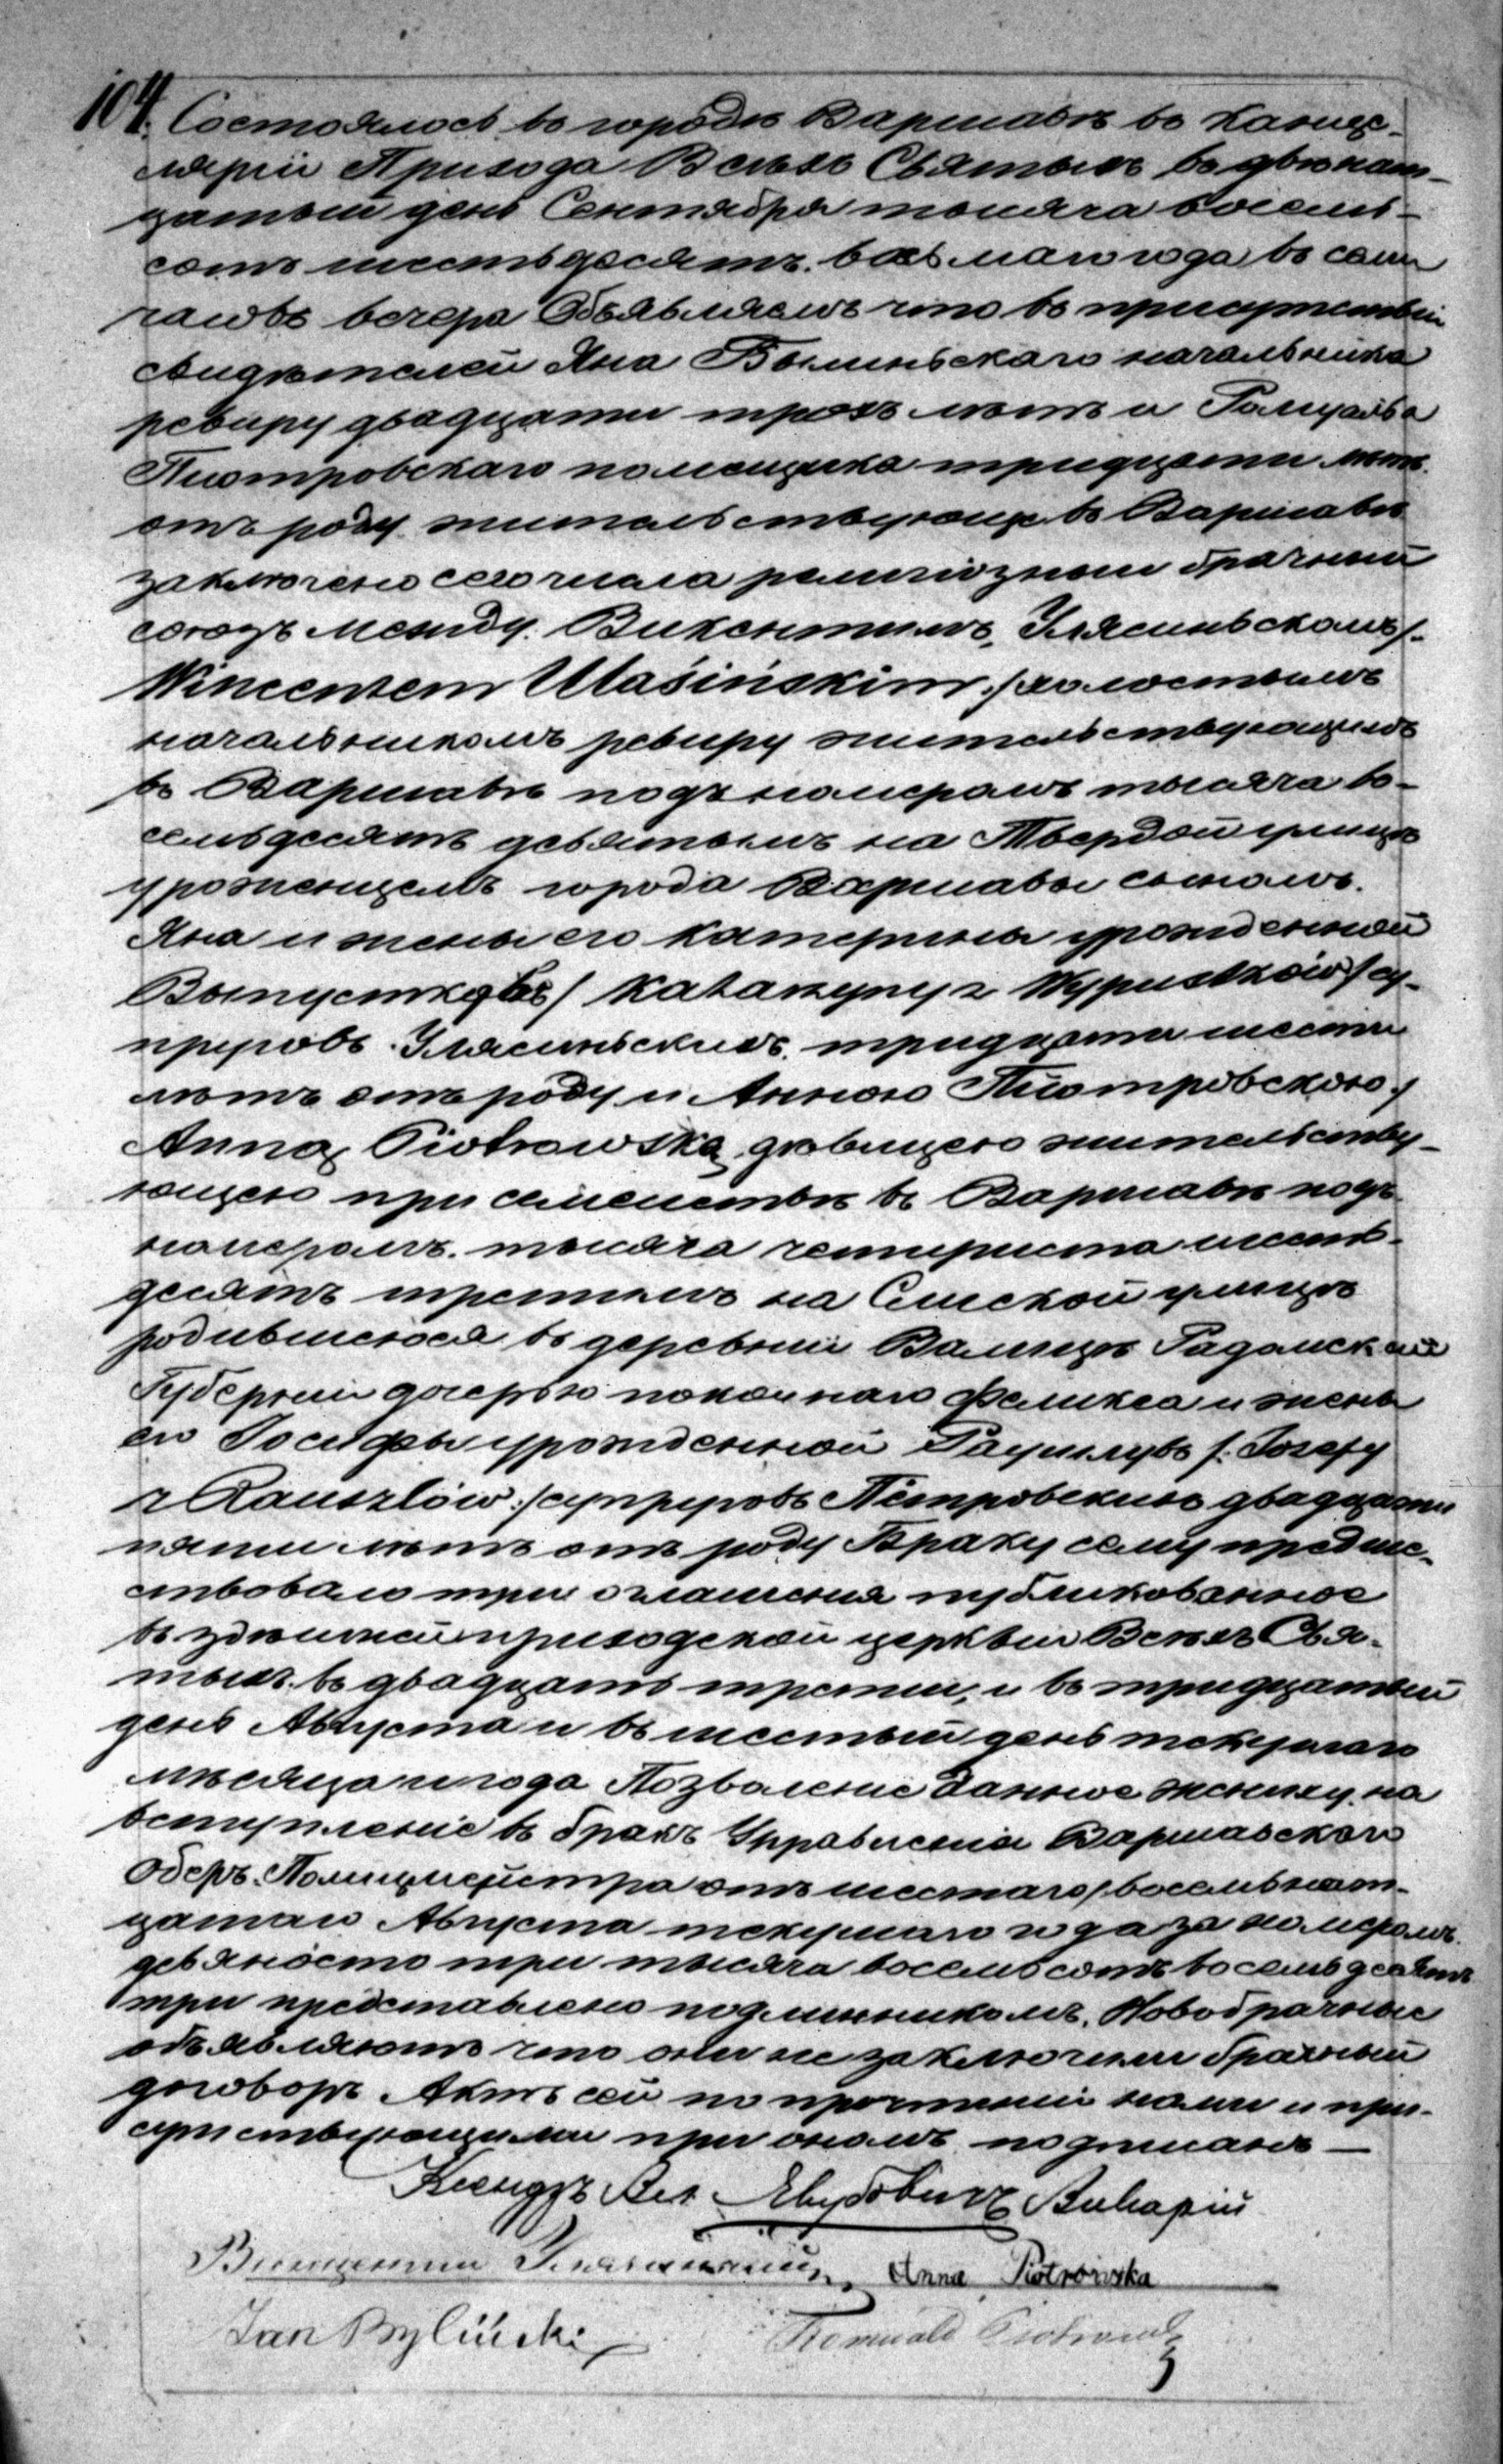 104. Состоялось въ городѣ Варшавѣ въ Канце-
ляріи Прихода Всѣхъ Святыхъ въ двѣнат-
цатый день Сентября тысяча восемь-
сотъ шестьдесятъ восьмаго года въ семь
часовъ вечера Объявляемъ что въ присутствіи
свидѣтелей Яна Былиньскаго начальника
ревиру двадцати трехъ лѣтъ и Ромуальда
Піотровскаго помещика тридцати лѣтъ
отъ роду жительствующе въ Варшавѣ
заключено сего числа религіозный брачный
союзъ между Викентимъ Улясиньскомъ /-
Wincentem Ulasińskim ./ холостымъ
начальникомъ ревиру жительствующимъ
въ Варшавѣ подъ номеромъ тысяча во-
семьдесятъ девятымъ на Твердой улицѣ
уроженцемъ города Варшавы сыномъ
Яна и жены его Катерины урожденной
Выпустковъ / Katarzyny z Wypustków / су-
пруговъ Улясиньскихъ тридцати шести
лѣтъ отъ роду и Анною Піотровскою /
Anną Piotrowską дѣвицею жительству-
ющею при семействѣ въ Варшавѣ подъ
номеромъ тысяча четыриста шесть-
десятъ третимъ на Слиской улицѣ
родившеюся въ деревни Валицѣ Радомской
Губерніи дочерью покойнаго Феликса и жены
его Іосифы урожденной Раушлувъ /: Józefy
z Rauszlów :/ супруговъ Пётровскихъ двадцати
пяти лѣтъ отъ роду Браку сему предше-
ствовало три оглашенія публикованное
въ здѣшней приходской церквѣ Всѣхъ Свя-
тыхъ въ двадцать третій, и въ тридцатый
день Августа и въ шестый день текущаго
мѣсяца и года Позволеніе данное жениху на
вступленіе въ бракъ Управленія Варшавскаго
Оберъ-Полицмейстра отъ шестаго / восемьнат-
цатаго Августа текущаго года за номеромъ
девяносто три тысяча восемьсотъ восемьдесятъ
три представлено подлинникомъ. Новобрачные
объявляютъ что они не заключили брачный
договоръ Актъ сей по прочтеніи нами и при-
сутствующими при ономъ подписанъ —
Ксендзъ Викарій
Anna Piotrowska
Jan Byliński Romuald Piotrowski